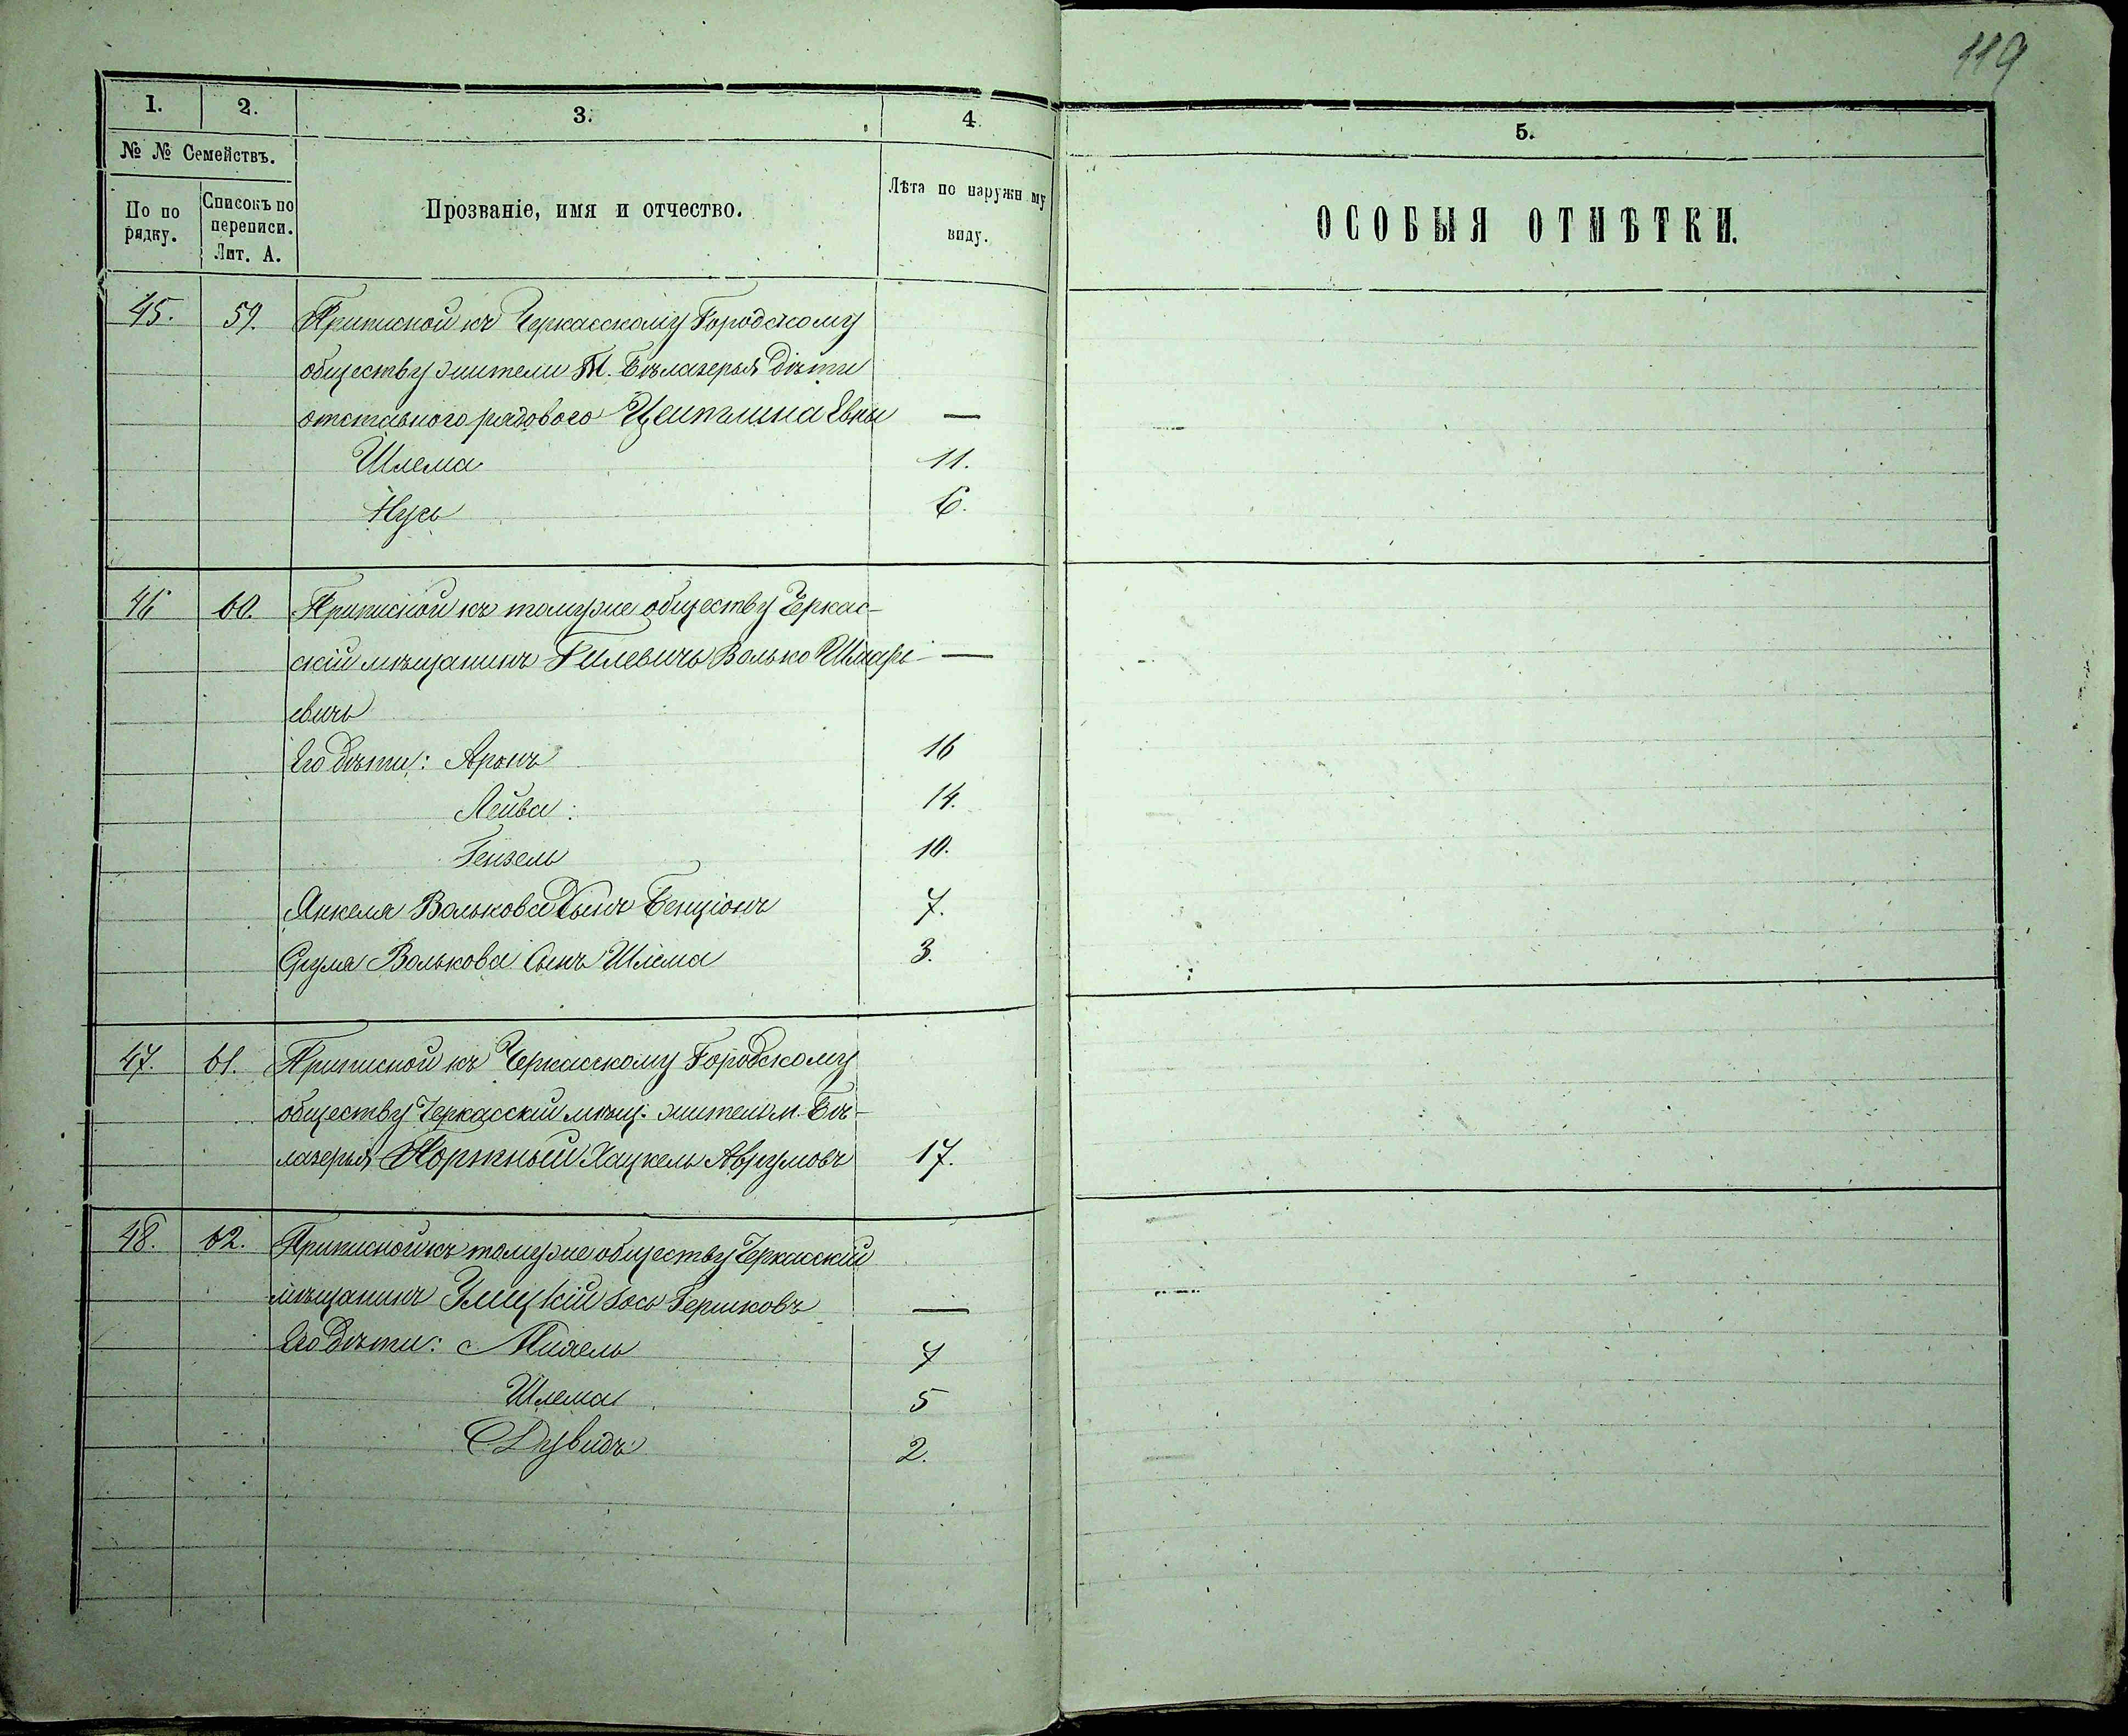 119
1. 2. 3. 4. 5.
№ № Семействъ.
По по рядку. Списокъ по переписи. Лит. А. Прозваніе, имя и отчество. Лѣта по наружн му виду. ОСОБЫЯ ОТМѢТКИ.
45. 59. Приписной къ Черкасскому Городскому
обществу жители М. Бѣлазерья дѣти
отставного рядового Цейтлина Евны —
Шлема 11.
Нусь 6.
46 60. Приписной къ томуже обществу Черкас-
скій мѣщанинъ Гилевичъ Волько Шмарь- —
евичъ
Его дѣти: Аронъ 16
Лейва 14.
Гензель 10.
Янкеля Волькова Сынъ Бенціонъ 7.
Сруля Волькова Сынъ Шлема 3.
47. 61. Приписной къ Черкасскому Городскому
обществу Черкасскій мѣщ. житель м. Бѣ-
лазерья Коржный Хацкель Аврумовъ 17.
48. 62. Приписной къ томуже обществу Черкасскій
мѣщанинъ Злицкій Іось Гершковъ —
Его дѣти: Михель 7
Шлема 5
Дувидъ 2.